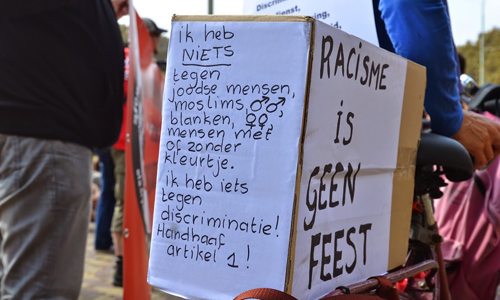 ik heb
NiETS
tegen
joodse mensen,
moslims, ⚣,
blanken, ⚢,
mensen met
of zonder
kleurtje.
ik heb iets
tegen
discriminatie!
Handhaaf
artikel 1!
RACISME
is
GEEN
FEEST